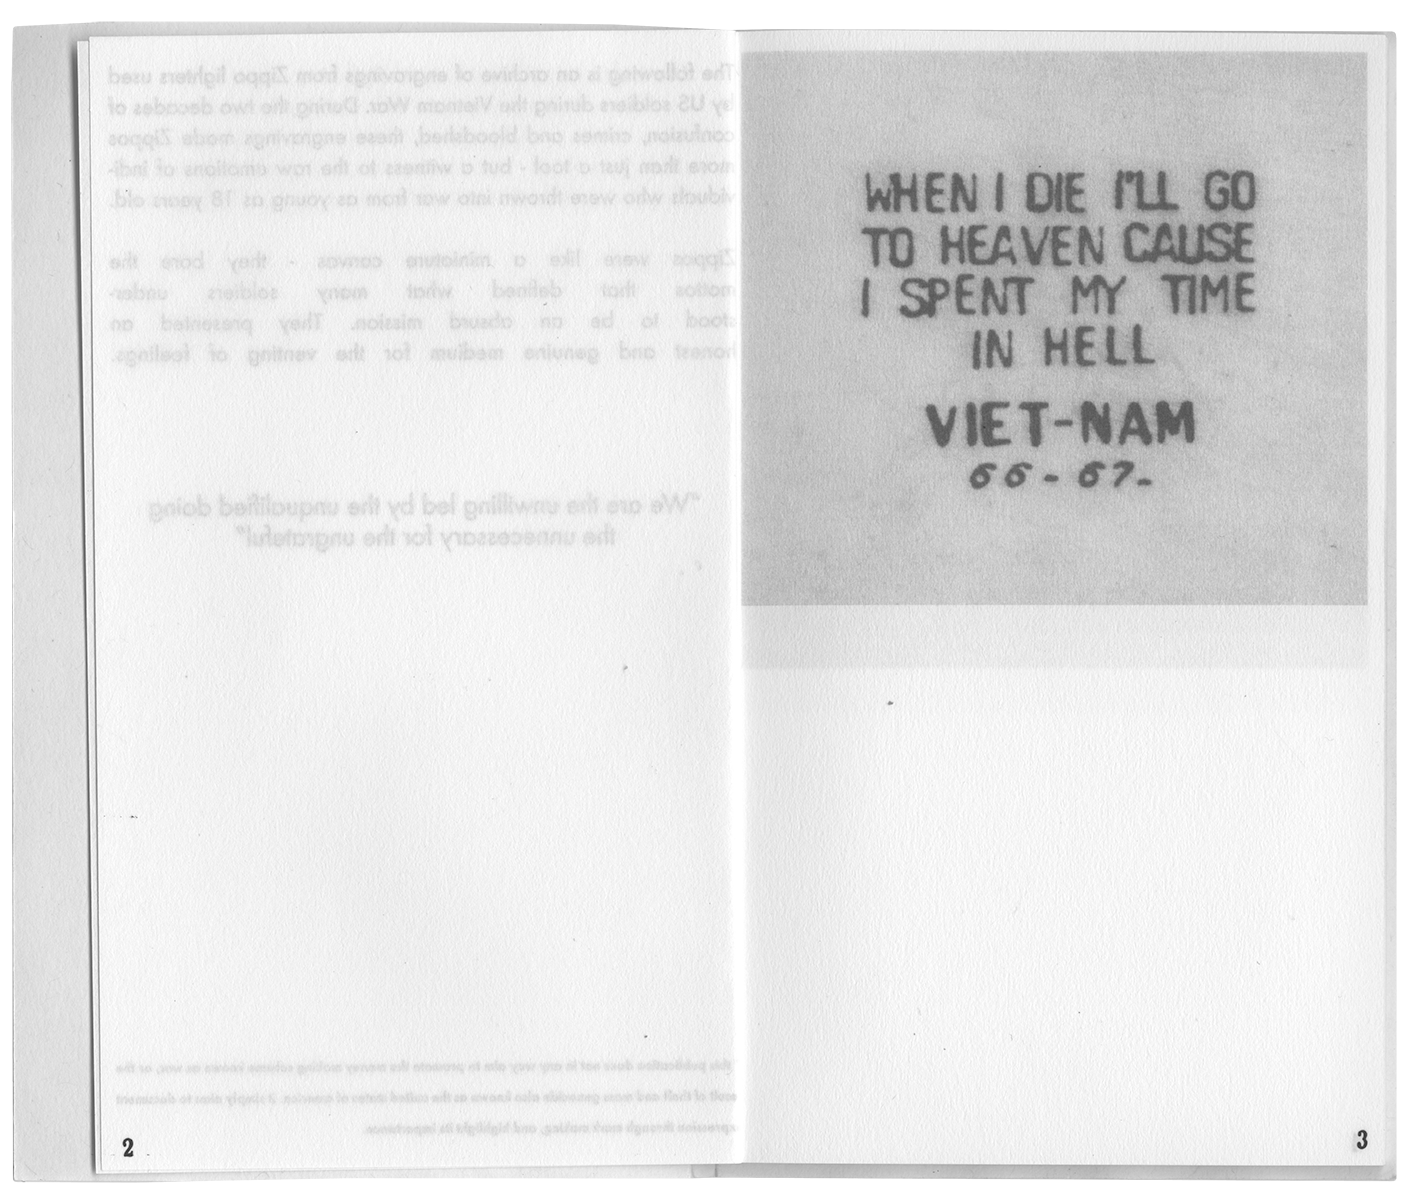 The following is an archive of engravings from Zippo lighters used
by US soldiers during the Vietnam War. During the two decades of
confusion, crimes and bloodshed, these engravings made Zippos
more than just a tool - but a witness to the raw emotions of indi-
viduals who were thrown into war from as young as 18 years old.
Zippos were like a miniature canvas - they bore the
mottos that defined what many soldiers under-
stood to be an absurd mission. They presented an
honest and genuine medium for the venting of feelings.
"We are the unwilling led by the unqualified doing
the unnecessary for the ungrateful"
this publication does not in any way aim to promote the money making scheme known as war, or the
of theft and mass genocide also known as the united states of america. it simply aims to document
expression through mark making, and highlight its importance.
2
WHEN I DIE I'LL GO
TO HEAVEN CAUSE
I SPENT MY TIME
IN HELL
VIET-NAM
66-67-
3